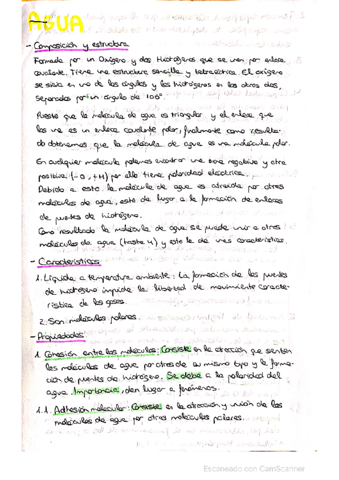 AGUA
- Composición y estructura
Formada por un Oxígeno y dos Hidrógenos que se unen por enlace
covalente. Tiene una estructura sencilla y tetraédrica. El oxígeno
se sitúa en uno de los ángulos y los hidrógenos en los otros dos,
separados por un ángulo de
Puesto que la molécula de agua es triangular y el enlace que
los une es un enlace covalente polar, finalmente como resulta-
do obtenemos que la molécula de agua es una molécula polar.
En cualquier molécula podemos encontrar una zona negativa y otra
positiva (-O, +H) por ello tiene polaridad eléctrica.
Debido a esto la molécula de agua es atraída por otras
moléculas de agua, esto da lugar a la formación de enlaces
de puentes de hidrógeno.
Como resultado la molécula de agua se puede unir a otras
moléculas de agua (hasta 4) y esto le da unas características.
- Características:
1. Líquida a temperatura ambiente: La formación de los puentes
de hidrógeno impide la libertad de movimiento caracte-
rística de los gases.
2. Son moléculas polares.
- Propiedades:
1. Cohesión entre las moléculas: Consiste en la atracción que sienten
las moléculas de agua por otras de su mismo tipo y la forma-
ción de puentes de hidrógeno. Se debe a la polaridad del
agua. Importancia, dan lugar a fenómenos.
1.1. Adhesión molecular: Consiste en la atracción y unión de las
moléculas de agua por otras moléculas polares.
Escaneado con CamScanner